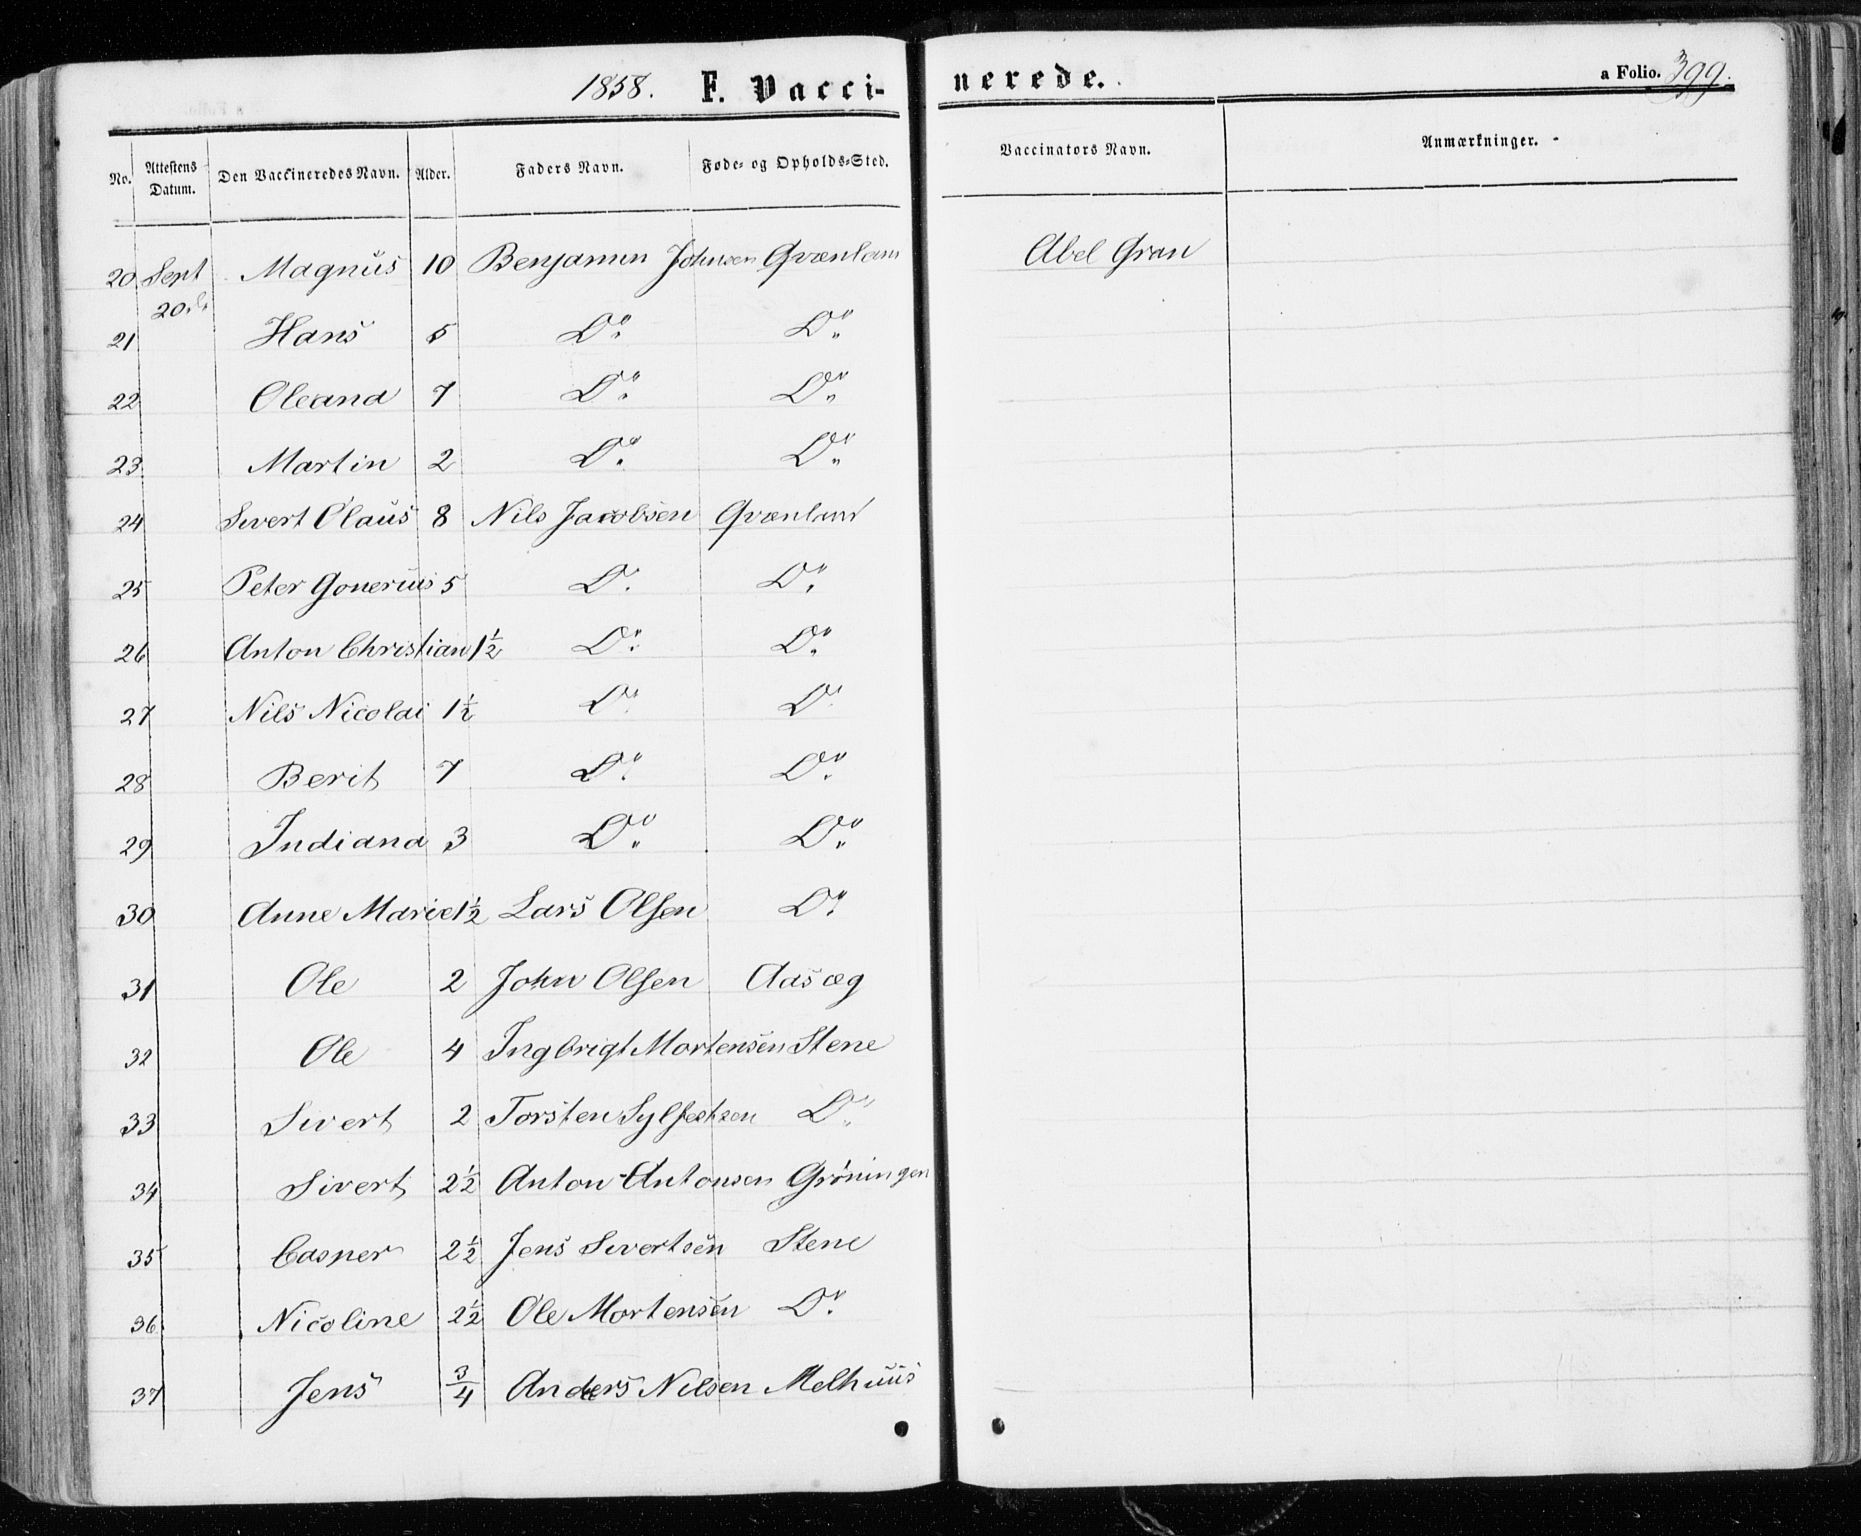 1858. F. Vacci-nerede. a Folio. 399.
No. Attestens Datum. Den Vaccineredes Navn. Alder. Faders Navn. Føde- og Opholds-Sted. Vaccinators Navn. Anmærkninger.
20 Sept Magnus 10 Benjamin Johnsen Qvænland Abel Gran
20de
21 Hans 5 Do Do
22 Oleana 7 Do Do
23 Martin 2 Do Do
24 Sivert Olaus 8 Nils Jacobsen Qvænland
25 Peter Gonerius 5 Do Do
26 Anton Christian 1½ Do Do
27 Nils Nicolai 1½ Do Do
28 Berit 7 Do Do
29 Indiana 3 Do Do
30 Anne Marie 1½ Lars Olsen Do
31 Ole 2 John Olsen Aasæg
32 Ole 4 Ingbrigt Mortensen Stene
33 Sivert 2 Torsten Do
34 Sivert 2½ Anton Antonsen Gröningen
35 Casper 2½ Jens Sivertsen Stene
36 Nicoline 2½ Ole Mortensen Do
37 Jens 3/4 Anders Nilsen Melhuus